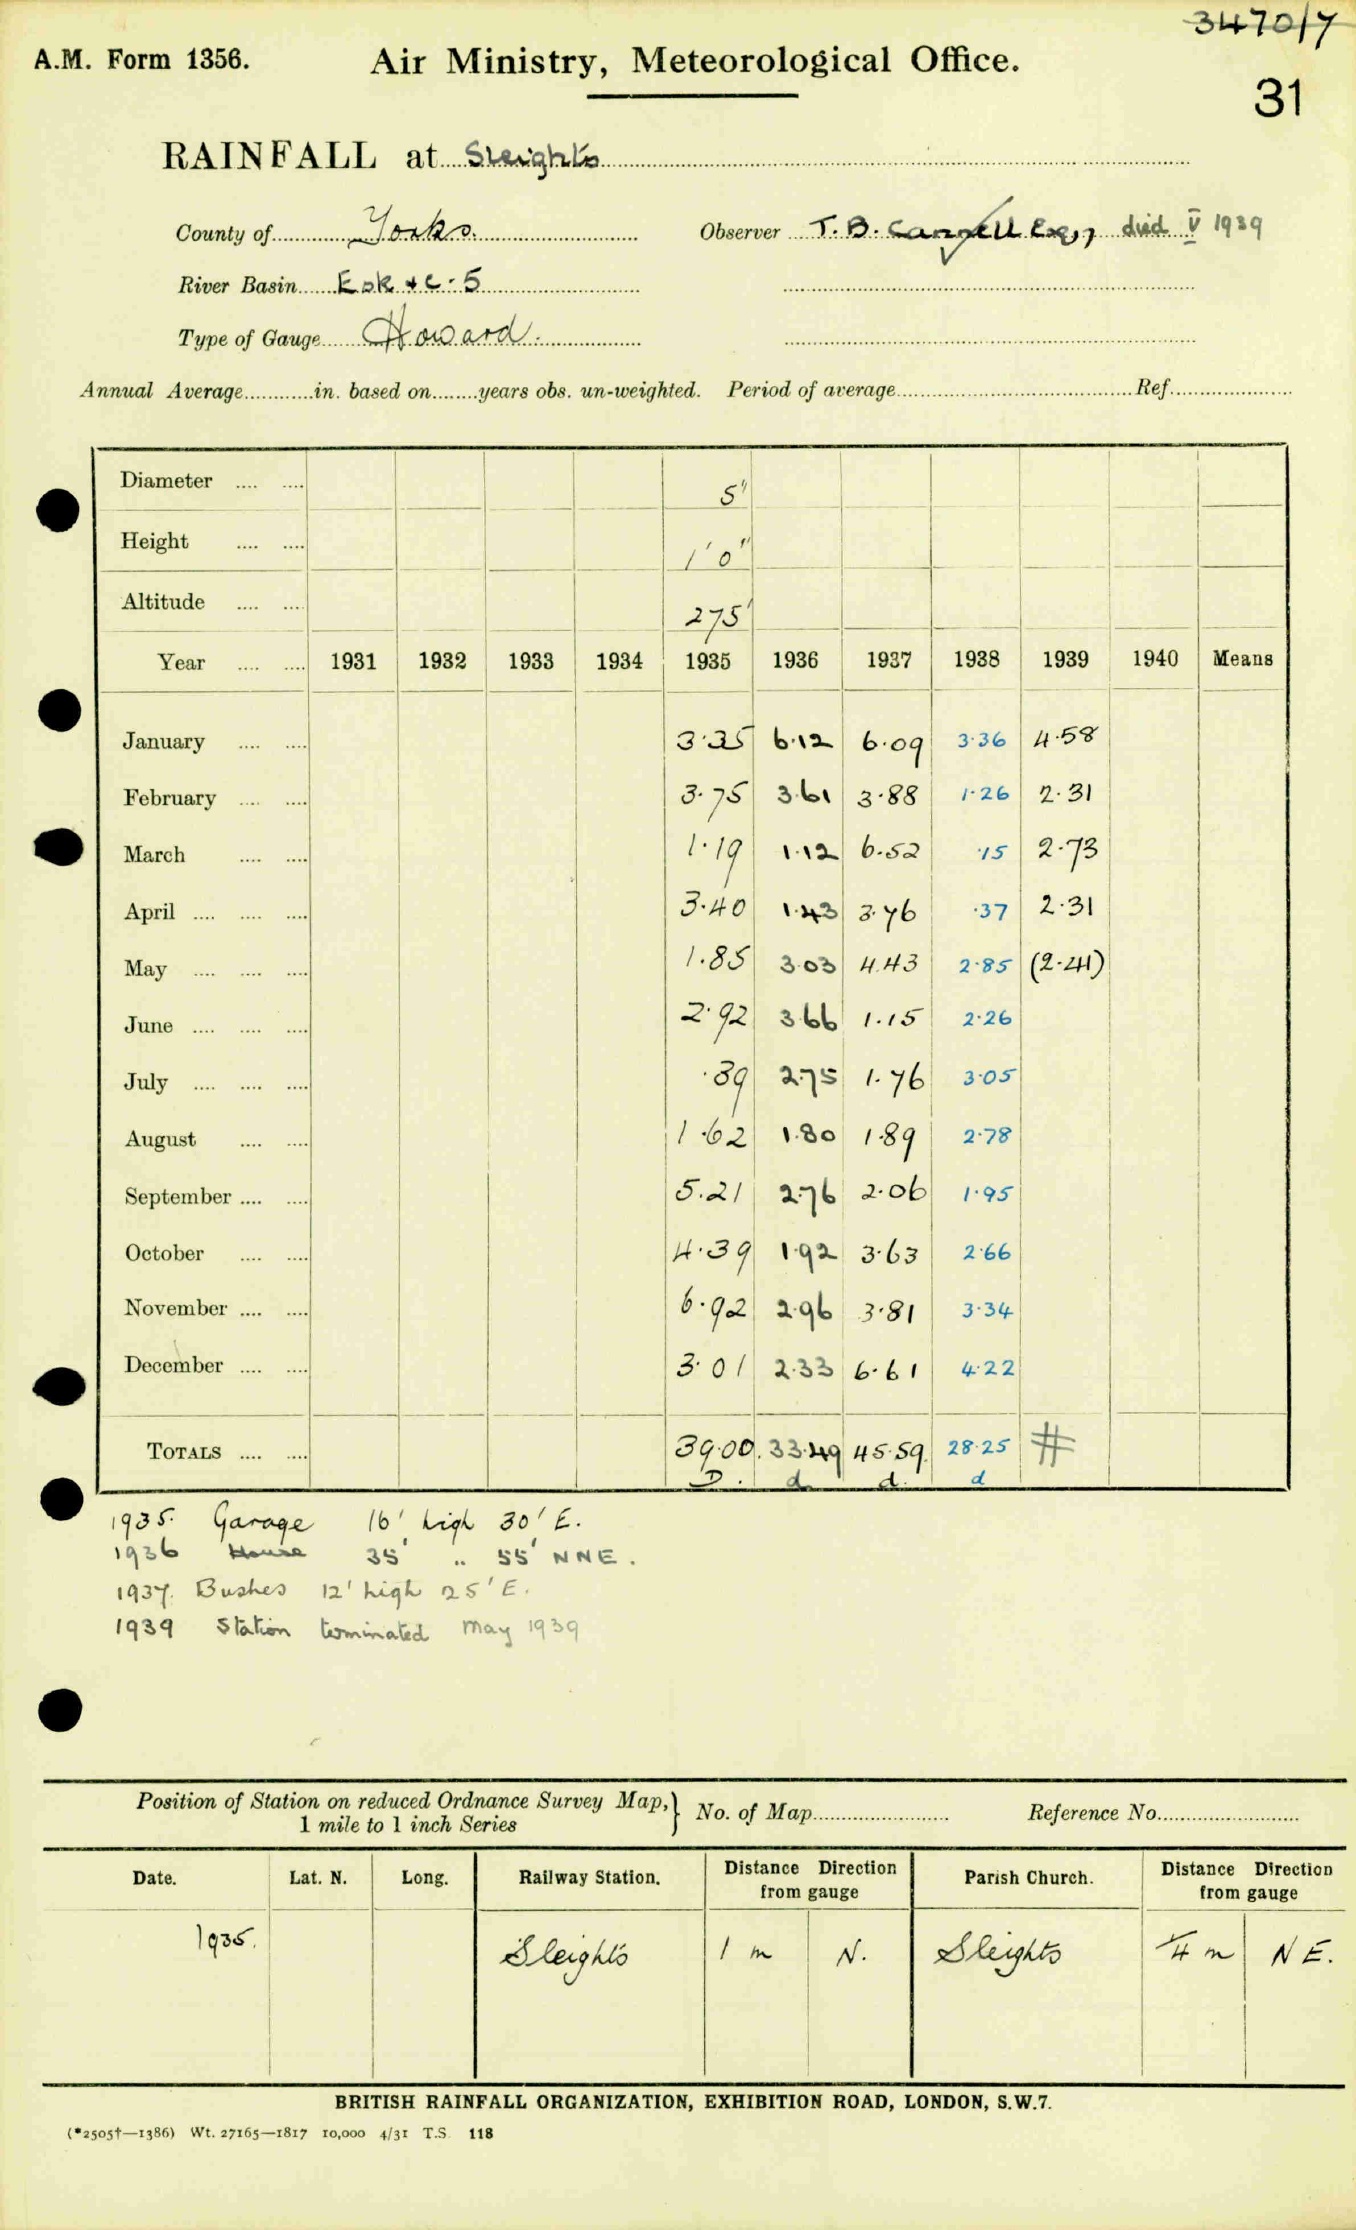 3470/7
A.M. Form 1356. Air Ministry, Meteorological Office.
31
RAINFALL at Sleights
County of Yorks. Observer T. B. Esq, died V 1939
River Basin Esk & C-5
Type of Gauge Howard.
Annual Average in. based on years obs. un-weighted. Period of average Ref.
Diameter 5"
Height 1' 0"
Altitude 275'
Year 1931 1932 1933 1934 1935 1936 1937 1938 1939 1940 Means
January 3.35 6.12 6.09 3.36 4.58
February 3.75 3.61 3.88 1.26 2.31
March 1.19 1.12 6.52 .15 2.73
April 3.40 1.43 3.76 .37 2.31
May 1.85 3.03 4.43 2.85 (2.41)
June 2.92 3.66 1.15 2.26
July .39 2.75 1.76 3.05
August 1.62 1.80 1.89 2.78
September 5.21 2.76 2.06 1.95
October 4.39 1.92 3.63 2.66
November 6.92 2.96 3.81 3.34
December 3.01 2.33 6.61 4.22
TOTALS 39.00. 33.49 45.59. 28.25 #
D. d d. d
1935. Garage 16' high 30' E.
1936 House 35' " 55' NNE.
1937. Bushes 12' high 25' E.
1939 Station terminated May 1939
Position of Station on reduced Ordnance Survey Map,} No. of Map Reference No.
1 mile to 1 inch Series
Date. Lat. N. Long. Railway Station. Distance Direction from gauge Parish Church. Distance Direction from gauge
1935. Sleights 1 m N. Sleights 1/4 m N E.
BRITISH RAINFALL ORGANIZATION, EXHIBITION ROAD, LONDON, S.W.7.
(*2505†—1386) Wt. 27165—1817 10,000 4/31 T.S. 118